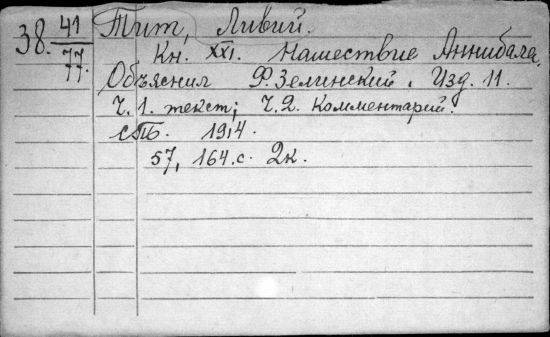 38. 41/77. Тит, Ливий.
Кн. XXI. Нашествие Аннибала.
Объяснил Ф. Зелинский. Изд. 11.
Ч. 1. текст; Ч. 2. Комментарий.
СПБ. 1914.
57, 164 с. 2к.